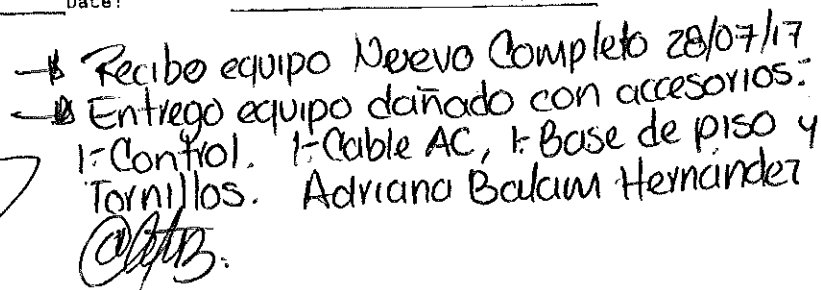 Date:
→ Recibo equipo Nuevo Completo 28/07/17
→ Entrego equipo dañado con accesorios:
1- Control. 1- Cable AC, 1- Base de piso y
Tornillos. Adriana Balam Hernández